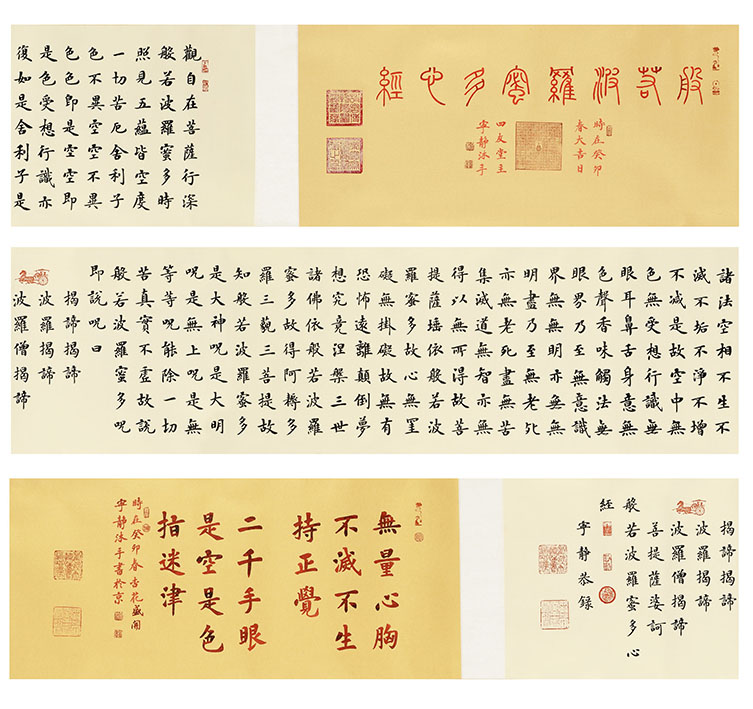 般若波羅蜜多心經
時在癸卯
春大吉日
四友堂主
寧静沐手
觀自在菩薩行深
般若波羅蜜多時
照見五蘊皆空度
一切苦厄舍利子
色不異空空不異
色色即是空空即
是色受想行識亦
復如是舍利子是
諸法空相不生不
滅不垢不淨不增
不減是故空中無
色無受想行識無
眼耳鼻舌身意無
色聲香味觸法無
眼界乃至無意識
界無無明亦無無
明盡乃至無老死
亦無老死盡無苦
集滅道無智亦無
得以無所得故菩
提薩埵依般若波
羅蜜多故心無罣
礙無掛礙故無有
恐怖遠離顛倒夢
想究竟涅槃三世
諸佛依般若波羅
蜜多故得阿耨多
羅三藐三菩提故
知般若波羅蜜多
是大神呪是大明
呪是無上呪是無
等等呪能除一切
苦真實不虛故説
般若波羅蜜多呪
即説呪曰
揭諦揭諦
波羅揭諦
波羅僧揭諦
揭諦揭諦
波羅揭諦
波羅僧揭諦
菩提薩婆訶
般若波羅蜜多心
經
寧静恭錄
無量心胸
不滅不生
持正覺
二千手眼
是空是色
指迷津
時在癸卯春杏花盛開
寧静沐手書於京